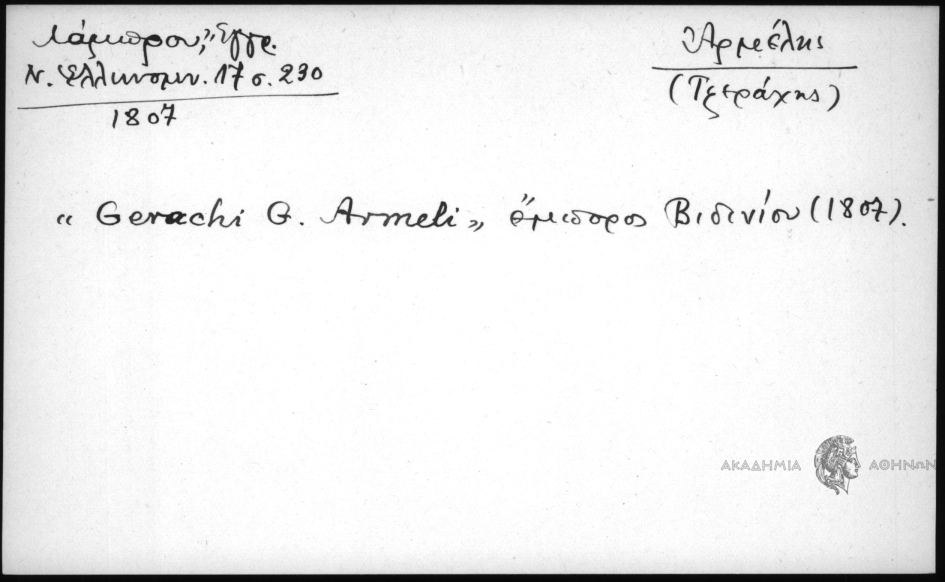 Λάμπρου, Ἔγγρ.
Ν. Ἑλληνομν. 17 σ. 290
1807
Ἀρμέλης
(Τζεράχης)
« Gerachi G. Armeli », ἔμπορος Βιδινίου (1807).
ΑΚΑΔΗΜΙΑ ΑΘΗΝΩΝ